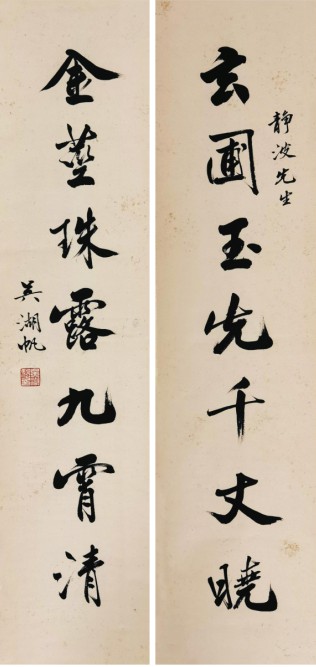 靜波先生
玄圃玉光千丈曉
金莖珠露九霄清
吳湖帆